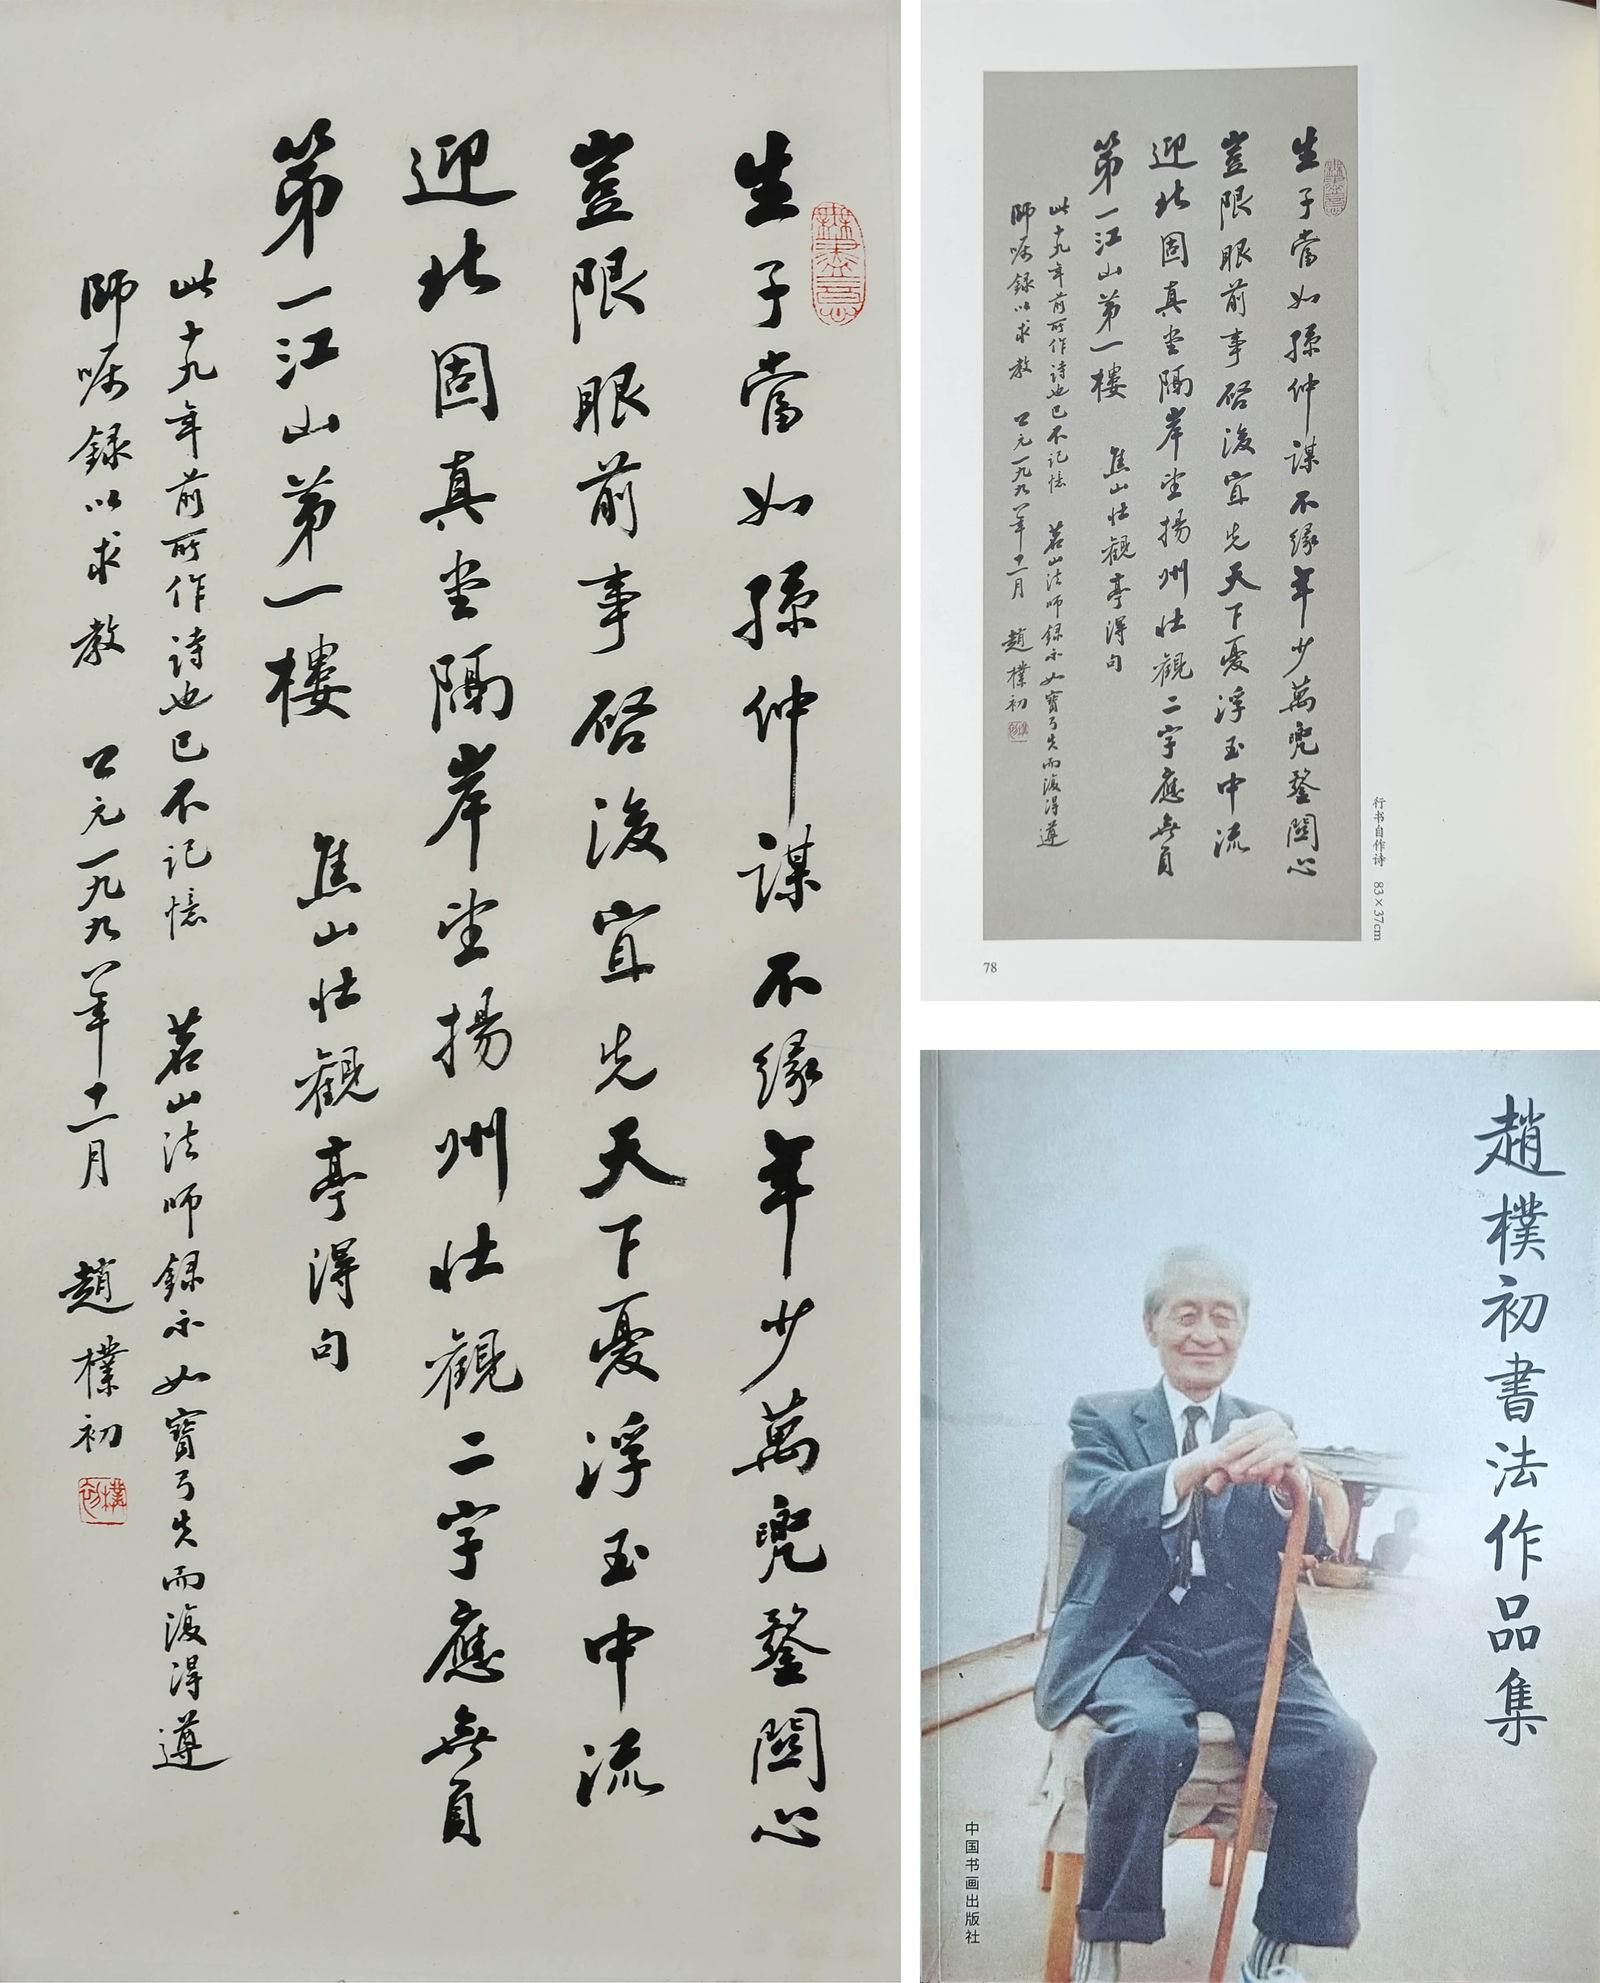 生子當如孫仲謀不緣年少萬兜鍪關心
豈限眼前事啓後宜先天下憂浮玉中流
迎北固真堂隔岸望揚州壯觀二字應無負
第一江山第一樓 焦山壯觀亭得句
此十九年前所作詩也已不記憶 茗山法師錄示如寶弓失而復得遵
師囑錄以求教 公元一九九一年十一月 趙樸初
無盡意
樸初
生子當如孫仲謀不緣年少萬兜鍪關心
豈限眼前事啓後宜先天下憂浮玉中流
迎北固真堂隔岸望揚州壯觀二字應無負
第一江山第一樓 焦山壯觀亭得句
此十九年前所作詩也已不記憶 茗山法師錄示如寶弓失而復得遵
師囑錄以求教 公元一九九一年十一月 趙樸初
無盡意
樸初
行书自作诗 83×37cm
78
趙樸初書法作品集
中国书画出版社